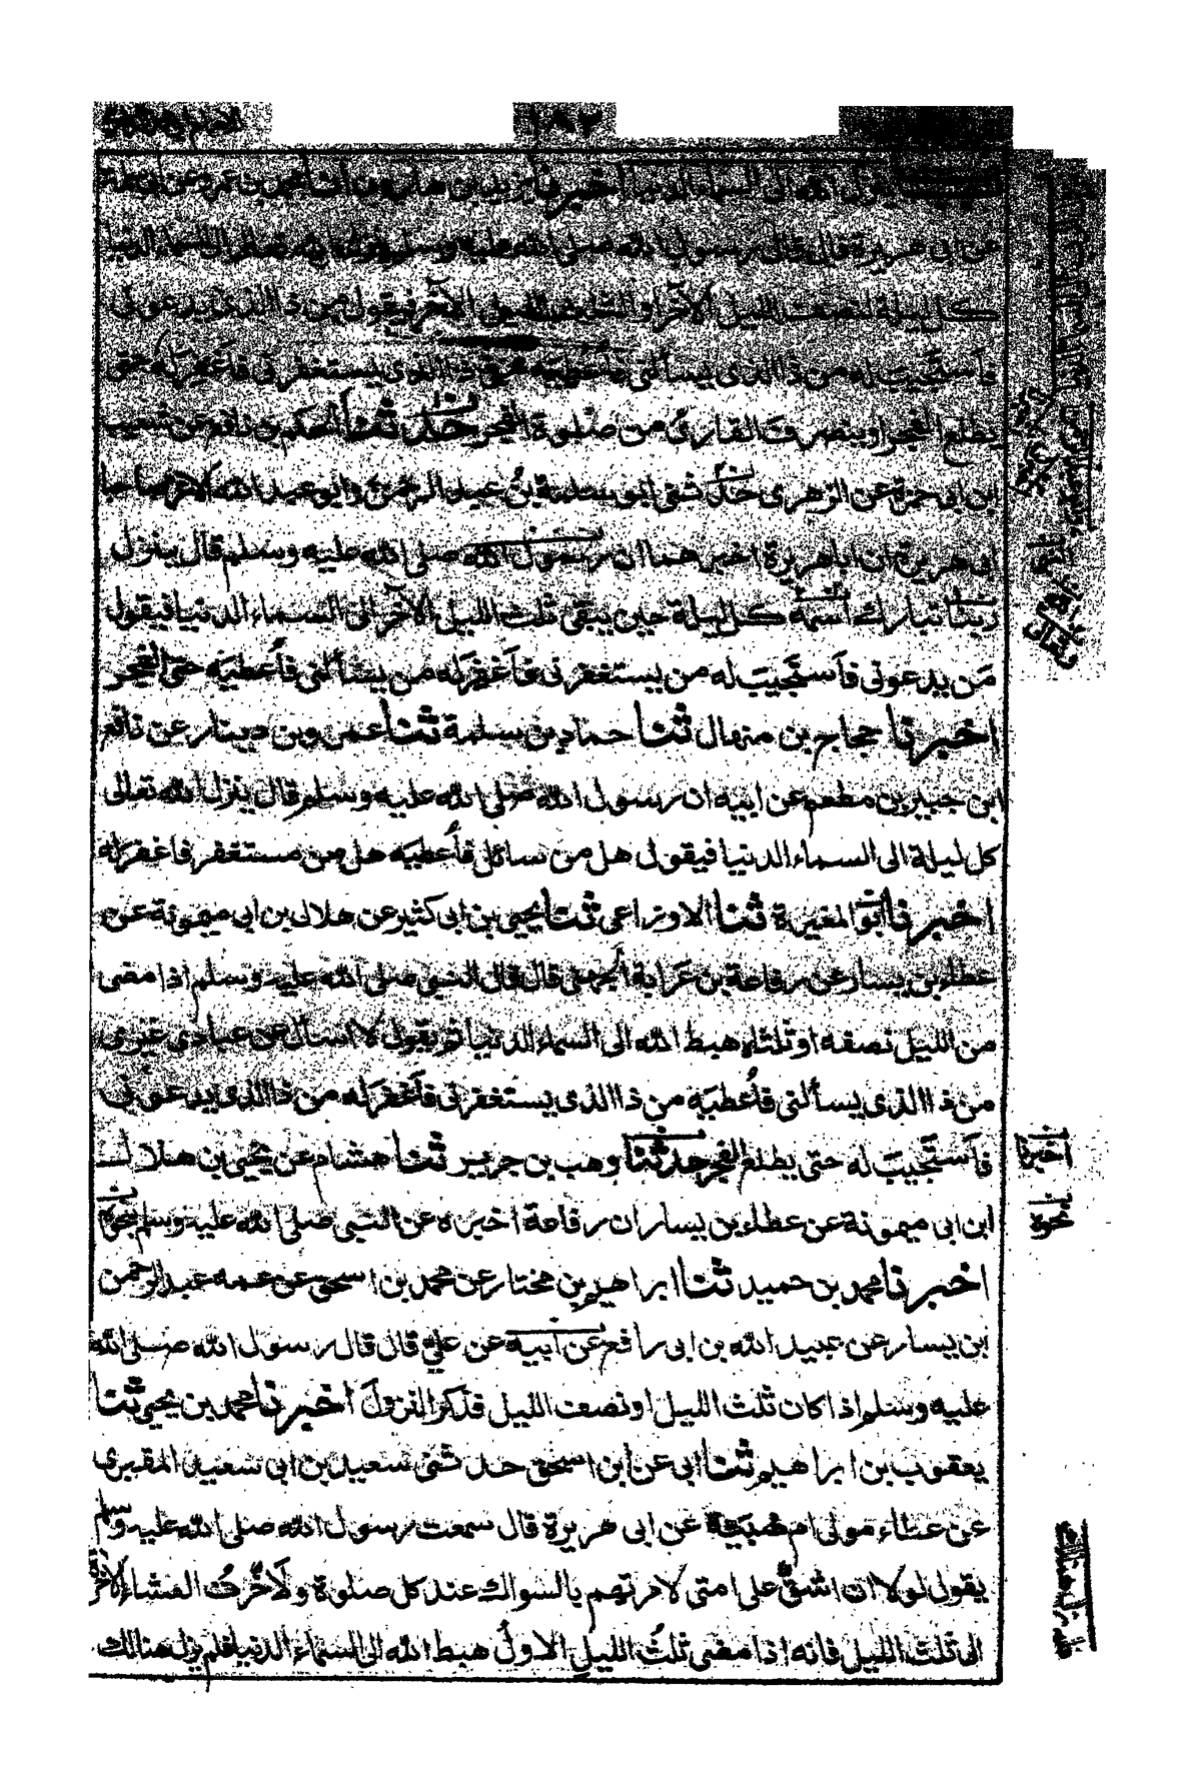 ١٨٢
ينزل الله الى السماء الدنيا اخبرنا يزيد بن هارون انا محمد بن عمرو عن ابى سلمة
عن ابى هريرة قال قال رسول الله صلى الله عليه وسلم ينزل الله تعالى الى السماء الدنيا
كل ليلة لنصف الليل الآخر او الثلث الليل الآخر فيقول من ذا الذى يدعونى
فاَستَجيبَ له من ذا الذى يسألنى فاُعطيَه من ذا الذى يستغفرنى فاَغفرَله حتى
يطلع الفجر او ينصرفَ القارئُ من صلوة الفجر حدثنا الحكم بن نافع عن شعيب
ابن ابى حمزة عن الزهرى حدثنى ابو سلمة بنُ عبد الرحمن وابو عبد الله الاغر صاحبا
ابى هريرة ان ابا هريرة اخبرهما ان رسول الله صلى الله عليه وسلم قال ينزل
ربنا تبارك اسمه كل ليلة حين يبقى ثلث الليل الآخر الى السماء الدنيا فيقول
مَن يدعونى فاَستجيبَ له من يستغفرنى فاَغفرَله من يسألنى فاُعطيَه حتى الفجر
اخبرنا حجاج بن منهال ثنا حماد بن سلمة ثنا عمرو بن دينار عن نافع
ابن جبير بن مطعم عن ابيه ان رسول الله صلى الله عليه وسلم قال ينزل الله تعالى
كل ليلة الى السماء الدنيا فيقول هل من سائل فاُعطيَه هل من مستغفر فاغفرله
اخبرنا ابو المغيرة ثنا الاوزاعى ثنا يحيى بن ابى كثير عن هلال بن ابى ميمونة عن
عطاء بن يسار عن رفاعة بن عَرابة الجهنى قال قال النبى صلى الله عليه وسلم اذا مضى
من الليل نصفه او ثلثاه هبط الله الى السماء الدنيا ثم يقول لا اسأل عن عبادى غيرى
من ذا الذى يسألنى فاُعطيَه من ذا الذى يستغفرنى فاَغفرَله من ذا الذى يدعونى
فاَستَجيبَ له حتى يطلع الفجر حدثنا وهب بن جرير ثنا هشام عن يحيى بن هلال
ابن ابى ميمونة عن عطاء بن يسار ان رفاعة اخبره عن النبى صلى الله عليه وسلم بنحوه
اخبرنا محمد بن حميد ثنا ابراهيم بن مختار عن محمد بن اسحق عن عمه عبد الرحمن
بن يسار عن عبيد الله بن ابى رافع عن ابيه عن علىّ قال قال رسول الله صلى الله
عليه وسلم اذا كان ثلث الليل او نصف الليل فذكر النزولَ اخبرنا محمد بن يحيى ثنا
يعقوب بن ابراهيم ثنا ابى عن ابن اسحق حدثنى سعيد بن ابى سعيد المقبرى
عن عطاء مولى ام صُبَيّة عن ابى هريرة قال سمعت رسول الله صلى الله عليه وسلم
يقول لولا ان اشقَّ على امتى لامرتهم بالسواك عند كل صلوة ولاَخّرتُ العشاء الآخرة
الى ثلث الليل فانه اذا مضى ثلثُ الليل الاولُ هبط الله الى السماء الدنيا فلم يزل هنالك
اخبرنا
نحوه